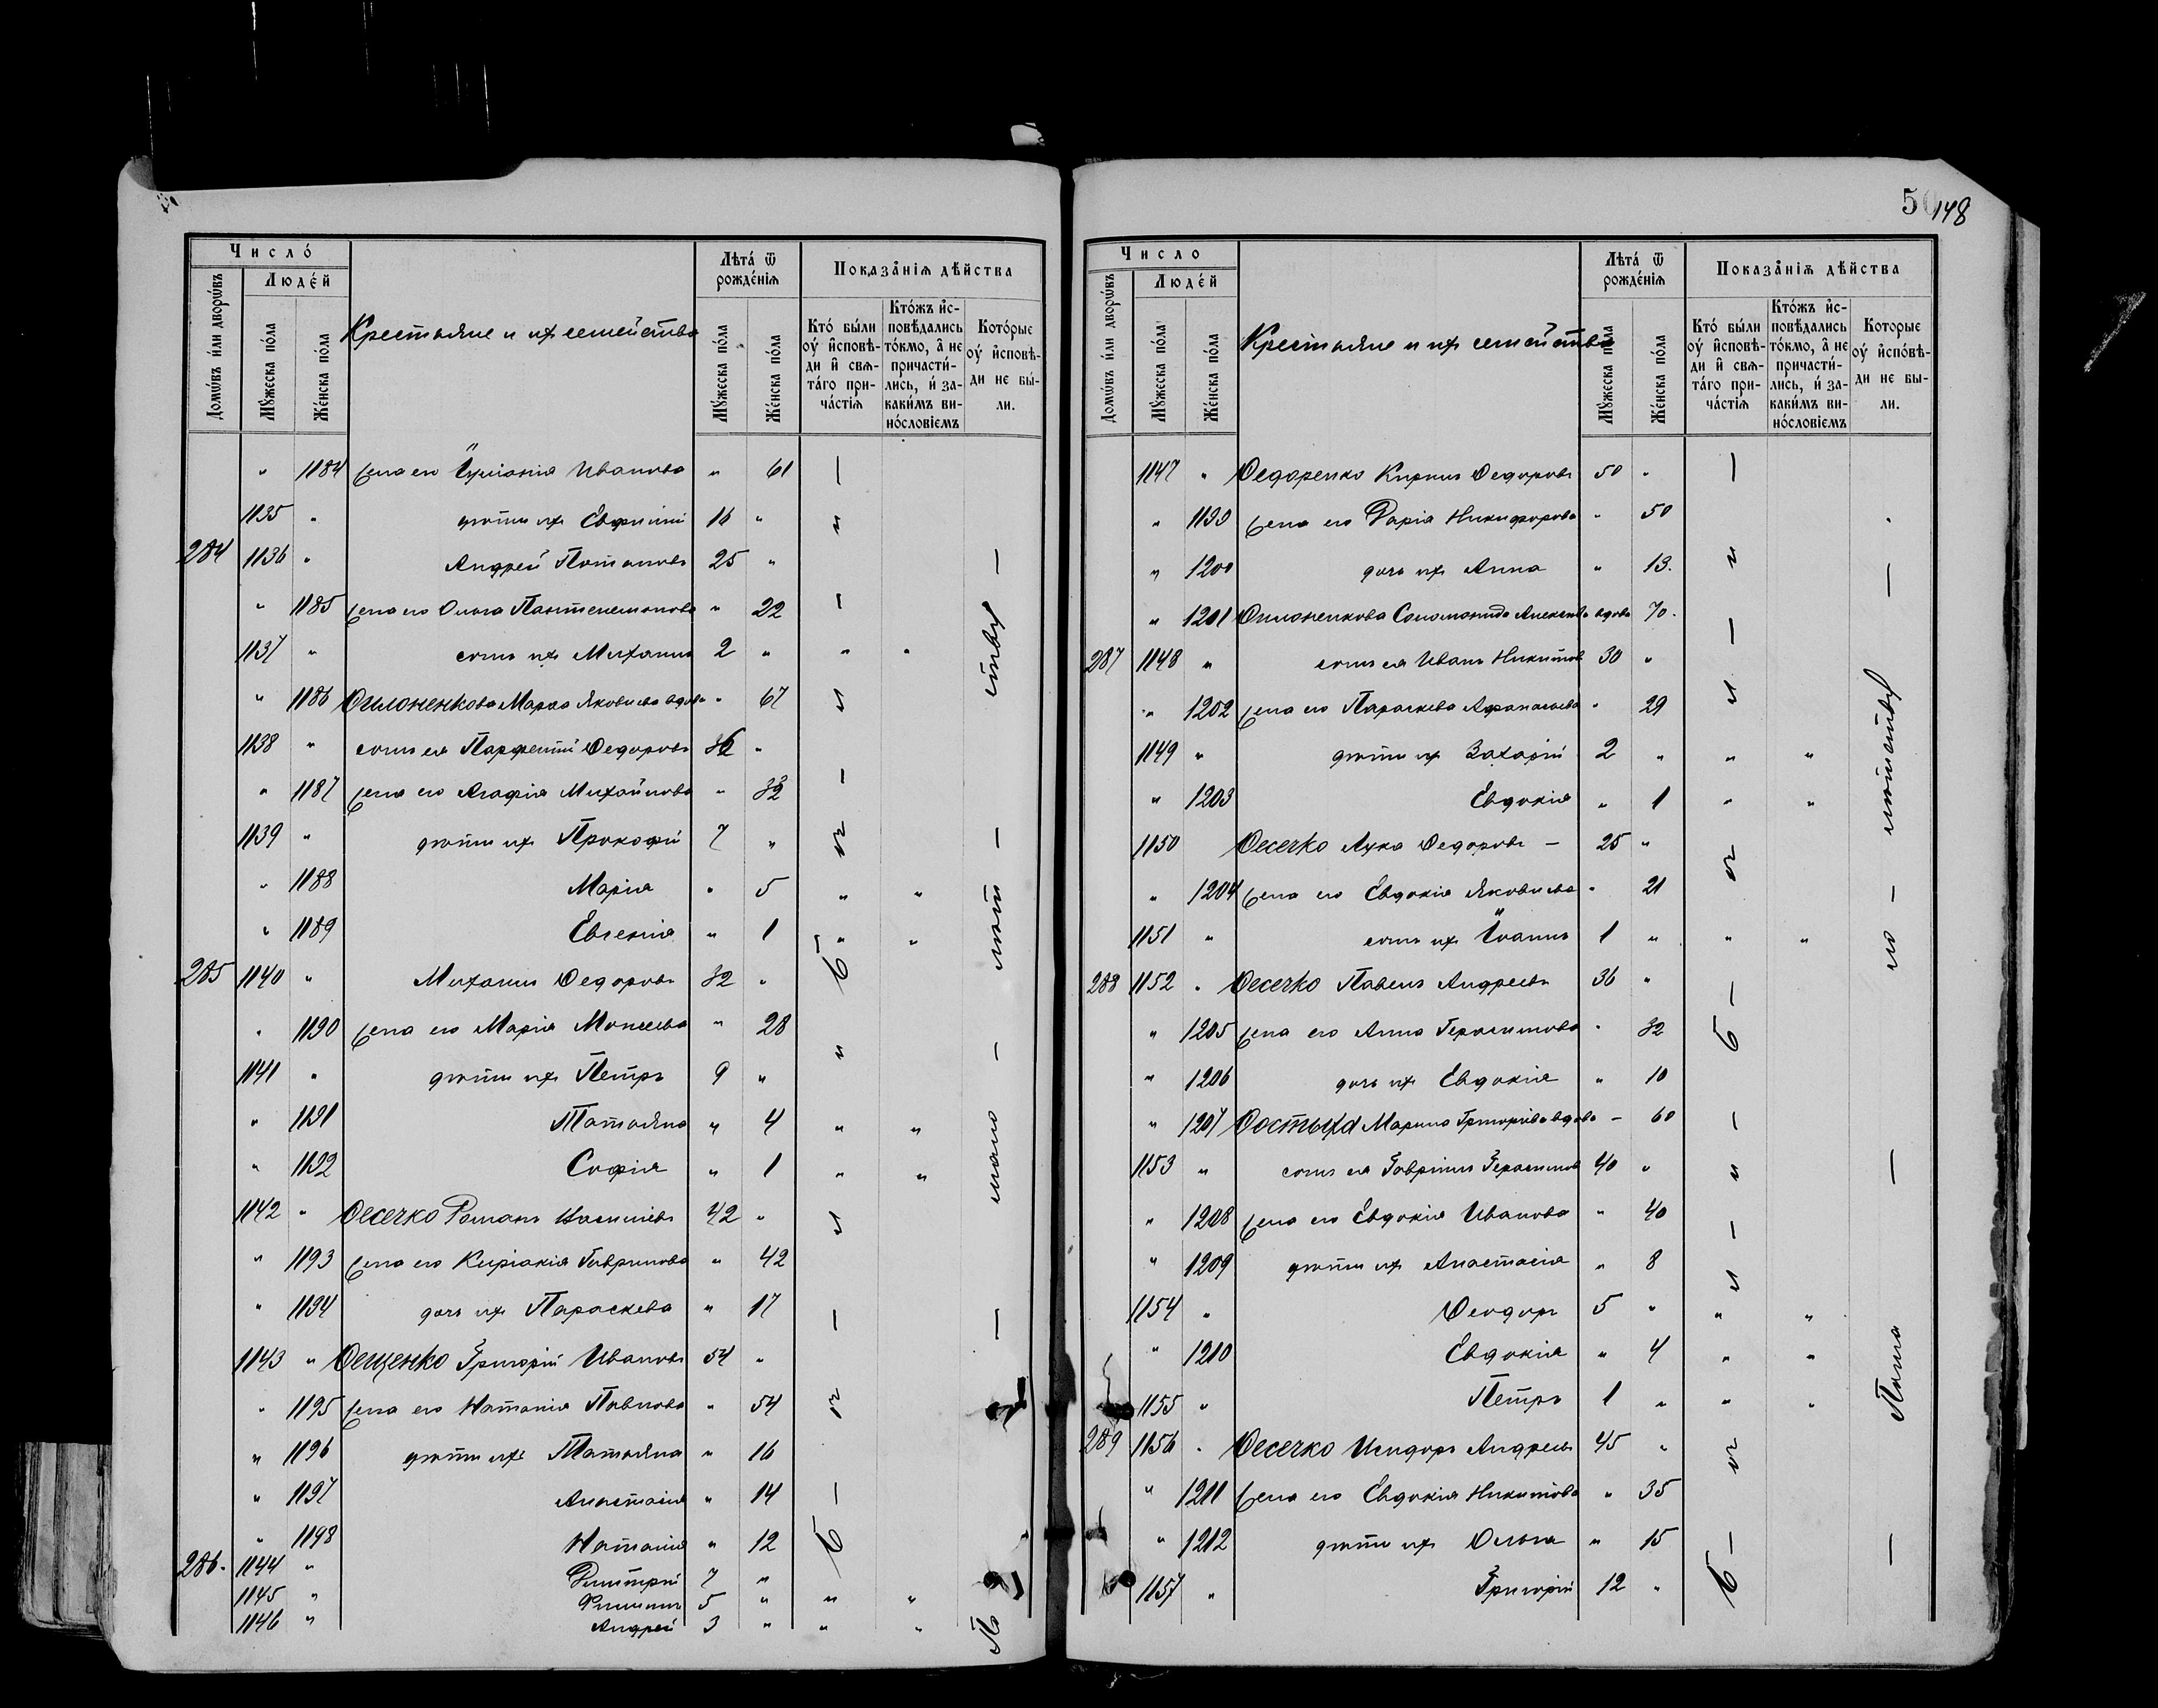 50 148
Число́
Домѡ́въ и́ли дворѡ́въ
Людє́й
Мꙋ́жеска по́ла
Жє́нска по́ла
Крестьяне и ихъ семейства
Лѣта́ ѿ рождє́нїѧ
Мꙋ́жеска по́ла
Жє́нска по́ла
Показа́нїѧ дѣ́йства
Кто́ бы́ли оу҆ и҆сповѣ-
ди и҆ свѧ-
та́го при-
ча́стїѧ
Кто́жъ и҆с-
повѣ́дались
то́кмо, а҆ не
причасти́-
лись, и҆ за-
каки́мъ ви-
но́словїемъ
Кото́рые
оу҆ и҆сповѣ́-
ди не бы́-
ли.
" 1184 жена его Іуліанія Иванова " 61
1135 " дѣти ихъ Евфимій 16 "
284 1136 " Андрей Потаповъ 25 "
" 1185 жена его Ольга Пантелемонова " 22
1137 " сынъ ихъ Михаилъ 2 " " "
" 1186 Филоненкова Марѳа Яковлева вдова " 67
1138 " сынъ ея Парфентій Федоровъ 36 "
" 1187 жена его Агафія Михайлова " 32
1139 " дѣти ихъ Прокофій 7 "
" 1188 Марія " 5 " "
" 1189 Евгенія " 1 " "
285 1140 " Михаилъ Федоровъ 32 "
" 1190 жена его Марія Моисеева " 28
1141 " дѣти ихъ Петръ 9 "
" 1191 Татьяна " 4 " "
" 1192 Софія " 1 " "
1142 " Фесечко Романъ 42 "
" 1193 жена его Киріакія Гаврилова " 42
" 1194 дочь ихъ Параскева " 17
1143 " Фещенко Григорій Ивановъ 54 "
" 1195 жена его Наталія Павлова " 54
" 1196 дѣти ихъ Татьяна " 16
" 1197 Анастасія " 14
" 1198 Наталія " 12
286. 1144 " Димитрій 7 "
1145 " Филиппъ 5 " " "
1146 " Андрей 3 " " "
По — мало — лѣт — ству —
Число
Домѡ́въ и́ли дворѡ́въ
Людє́й
Мꙋ́жеска по́ла
Жє́нска по́ла
Крестьяне и ихъ семейства
Лѣта́ ѿ рождє́нїѧ
Мꙋ́жеска по́ла
Жє́нска по́ла
Показа́нїѧ дѣ́йства
Кто́ бы́ли
оу҆ и҆сповѣ-
ди и҆ свѧ-
та́го при-
ча́стїѧ
Кто́жъ и҆с-
повѣ́дались
то́кмо, а҆ не
причасти́-
лись, и҆ за-
каки́мъ ви-
но́словїемъ
Которые
оу҆ и҆спо́вѣ-
ди не бы-
ли.
1147 " Федоренко Кириллъ Федоровъ 50 "
" 1199 жена его Дарія Никифорова " 50
" 1200 дочь ихъ Анна " 13.
" 1201 Филоненкова Соломонида Алексѣева вдова 70.
287 1148 " сынъ ея Иванъ Никитовъ 30 "
" 1202 жена его Параскева Афанасьева " 29
1149 " дѣти ихъ Захарій 2 " " "
" 1203 Евдокія " 1 " "
1150 Фесечко Лука Федоровъ — 25 "
" 1204 жена его Евдокія Яковлева " 21
1151 " сынъ ихъ Іоаннъ 1 " " "
288 1152 " Фесечко Павелъ Андреевъ 36 "
" 1205 жена его Анна Герасимова " 32
" 1206 дочь ихъ Евдокія " 10
" 1207 Фостыха Марина Григорьева вдова — 60
1153 " сынъ ея Гавріилъ Герасимовъ 40 "
" 1208 жена его Евдокія Иванова " 40
" 1209 дѣти ихъ Анастасія " 8
1154 " Феодоръ 5 " " "
" 1210 Евдокія " 4 " "
1155 " Петръ 1 " " "
289 1156 " Фесечко Исидоръ Андреевъ 45 "
" 1211 жена его Евдокія Никитова " 35
" 1212 дѣти ихъ Ольга " 15
1157 " Григорій 12 "